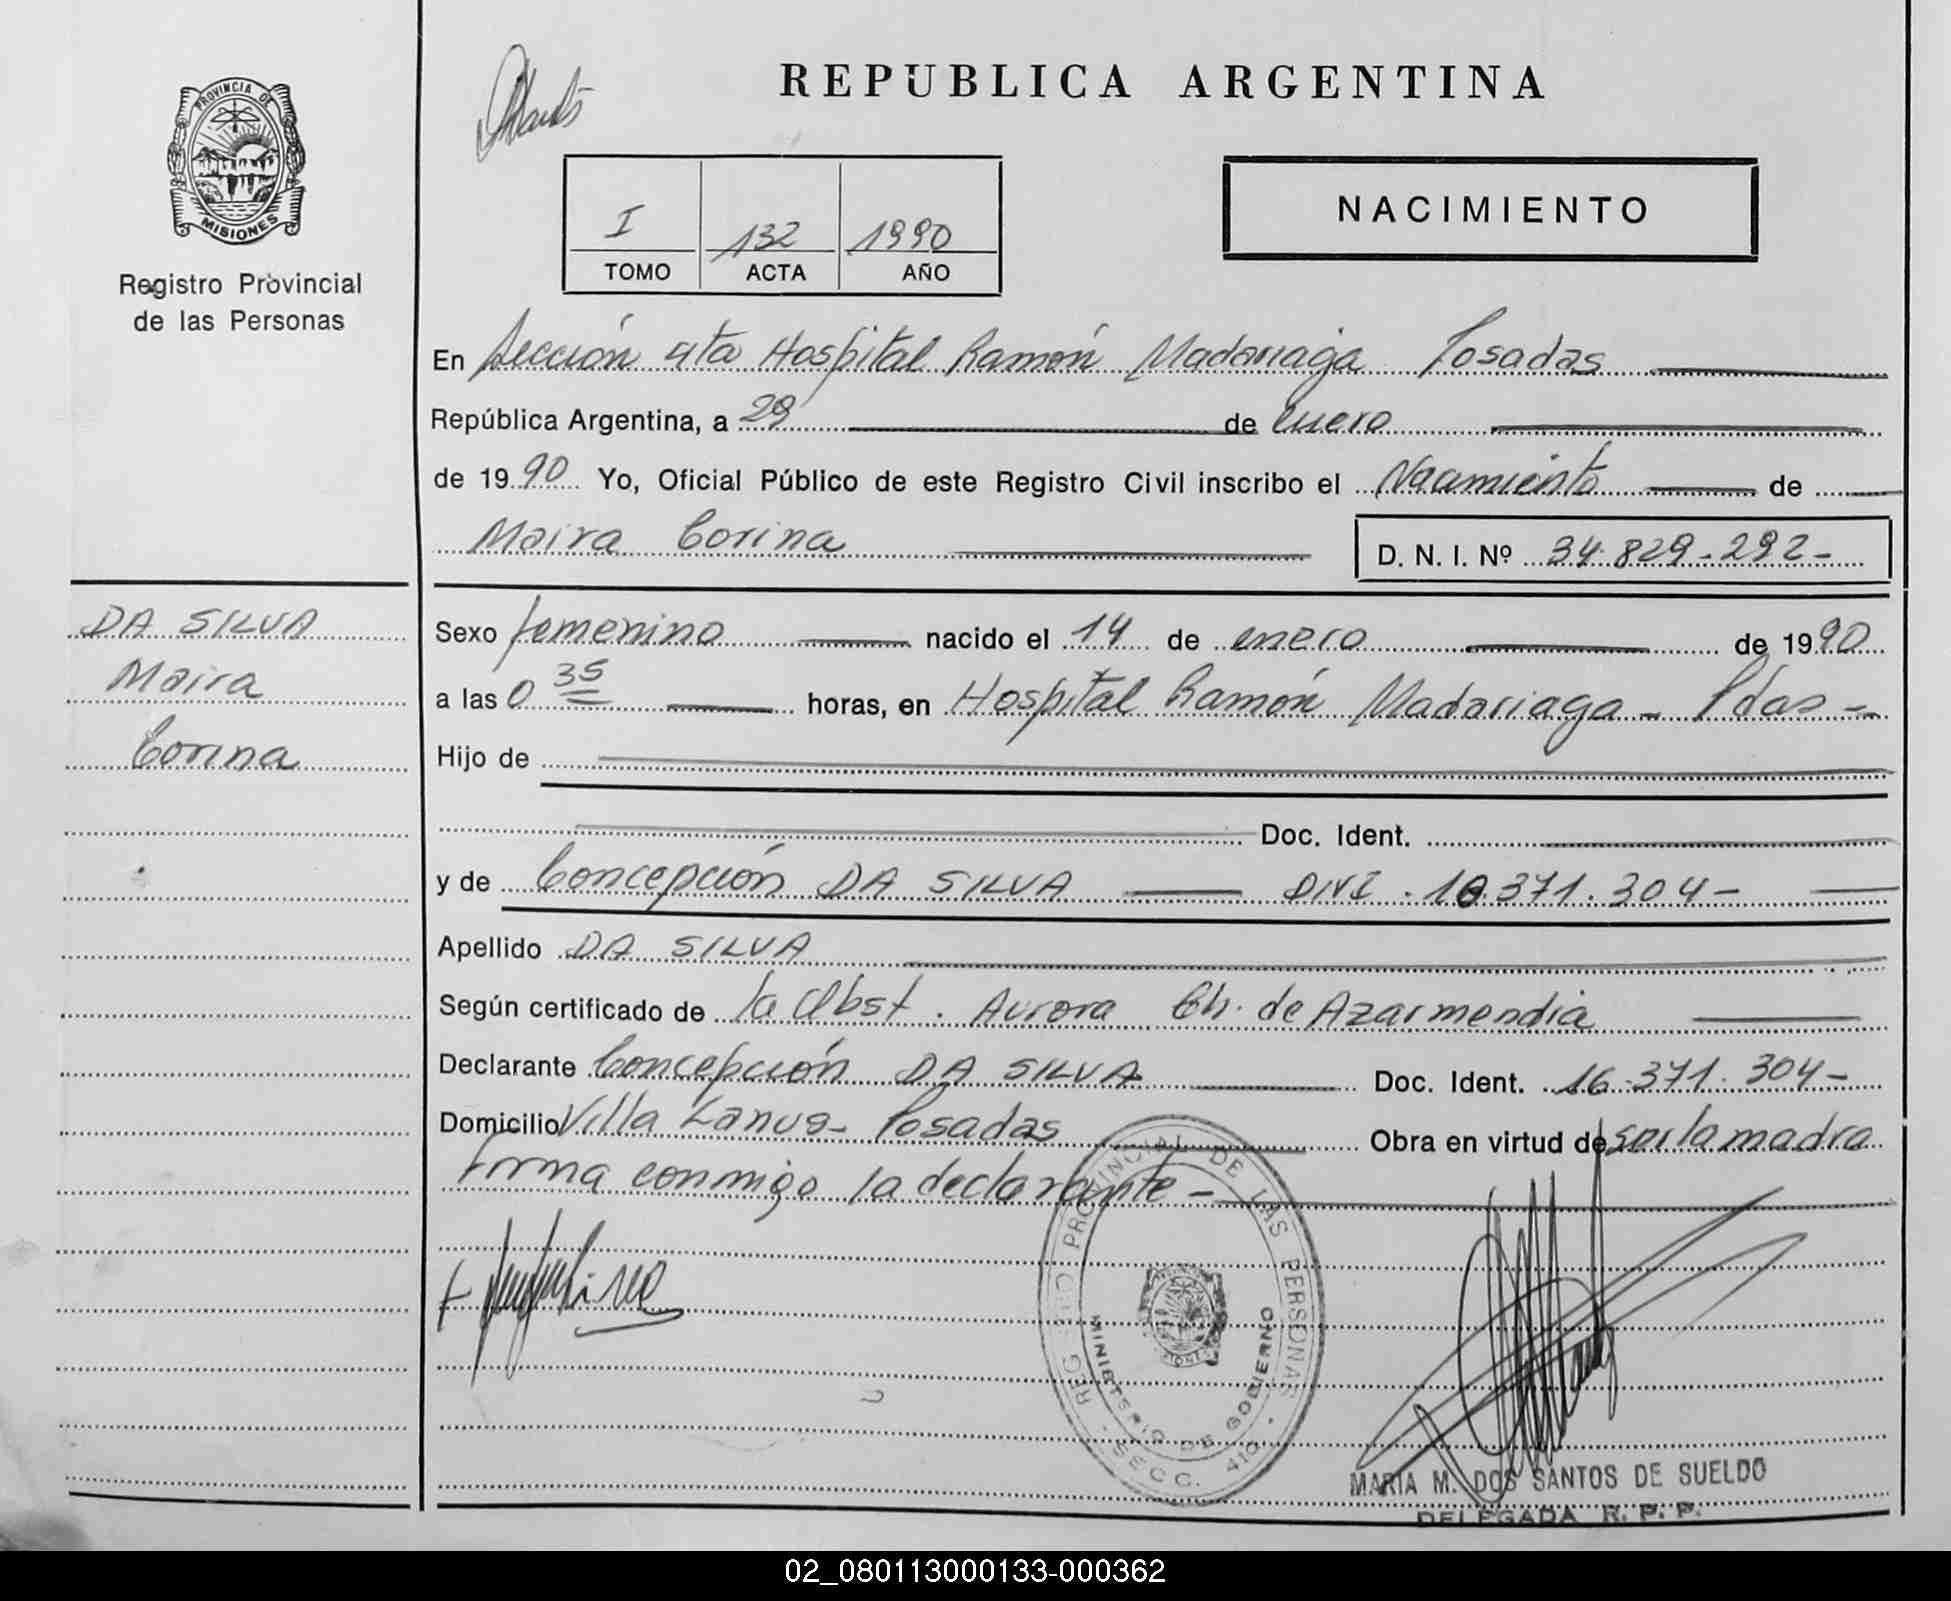 PROVINCIA DE
MISIONES
Registro Provincial
de las Personas
DA SILVA
Maira
Corina
REPUBLICA ARGENTINA
NACIMIENTO
I 132 1990
TOMO ACTA AÑO
En Sección 4ta Hospital Ramón Madariaga Posadas
República Argentina, a 29 de enero
de 1990 Yo, Oficial Público de este Registro Civil inscribo el Nacimiento de
Maira Corina D. N. I. Nº 34.829.292-
Sexo femenino nacido el 14 de enero de 1990
a las 0 35 horas, en Hospital Ramón Madariaga - Pdas -
Hijo de
Doc. Ident.
y de Concepción DA SILVA DNI . 16.371.304-
Apellido DA SILVA
Según certificado de la Obst. Aurora Ch. de Azarmendia
Declarante Concepción DA SILVA Doc. Ident. 16.371.304-
Domicilio Villa Lanus - Posadas Obra en virtud de ser la madre
Firma conmigo la declarante -
REGISTRO PROVINCIAL DE LAS PERSONAS
MINISTERIO DE GOBIERNO
SECC. 410
MARIA M. DOS SANTOS DE SUELDO
DELEGADA R. P. P.
02_080113000133-000362